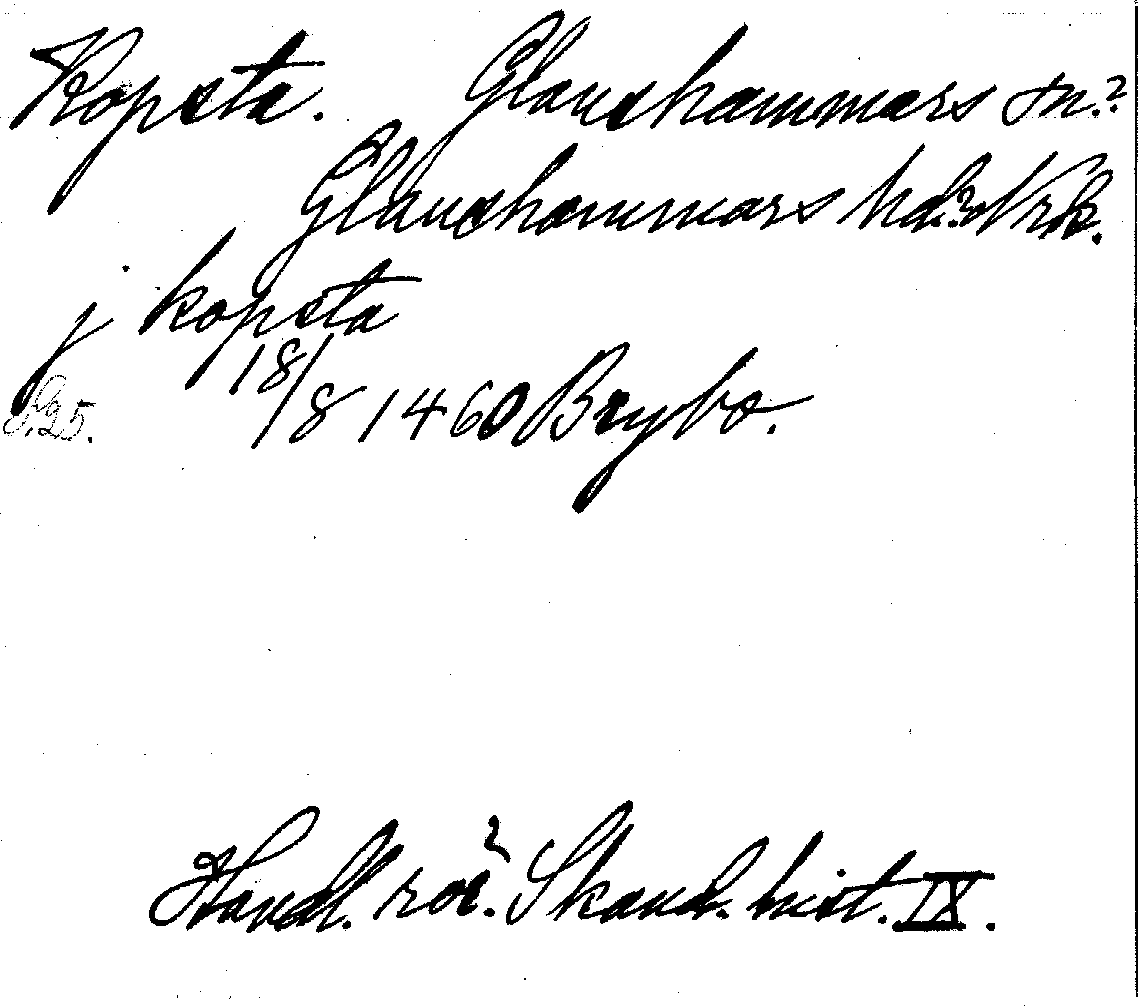 Kopsta. Glanshammars sn.?
Glanshammars hd.? Nrk.
j kopsta
18/8 1460 Brybo.
S. 25.
Handl. rör. Skand. hist. IX.